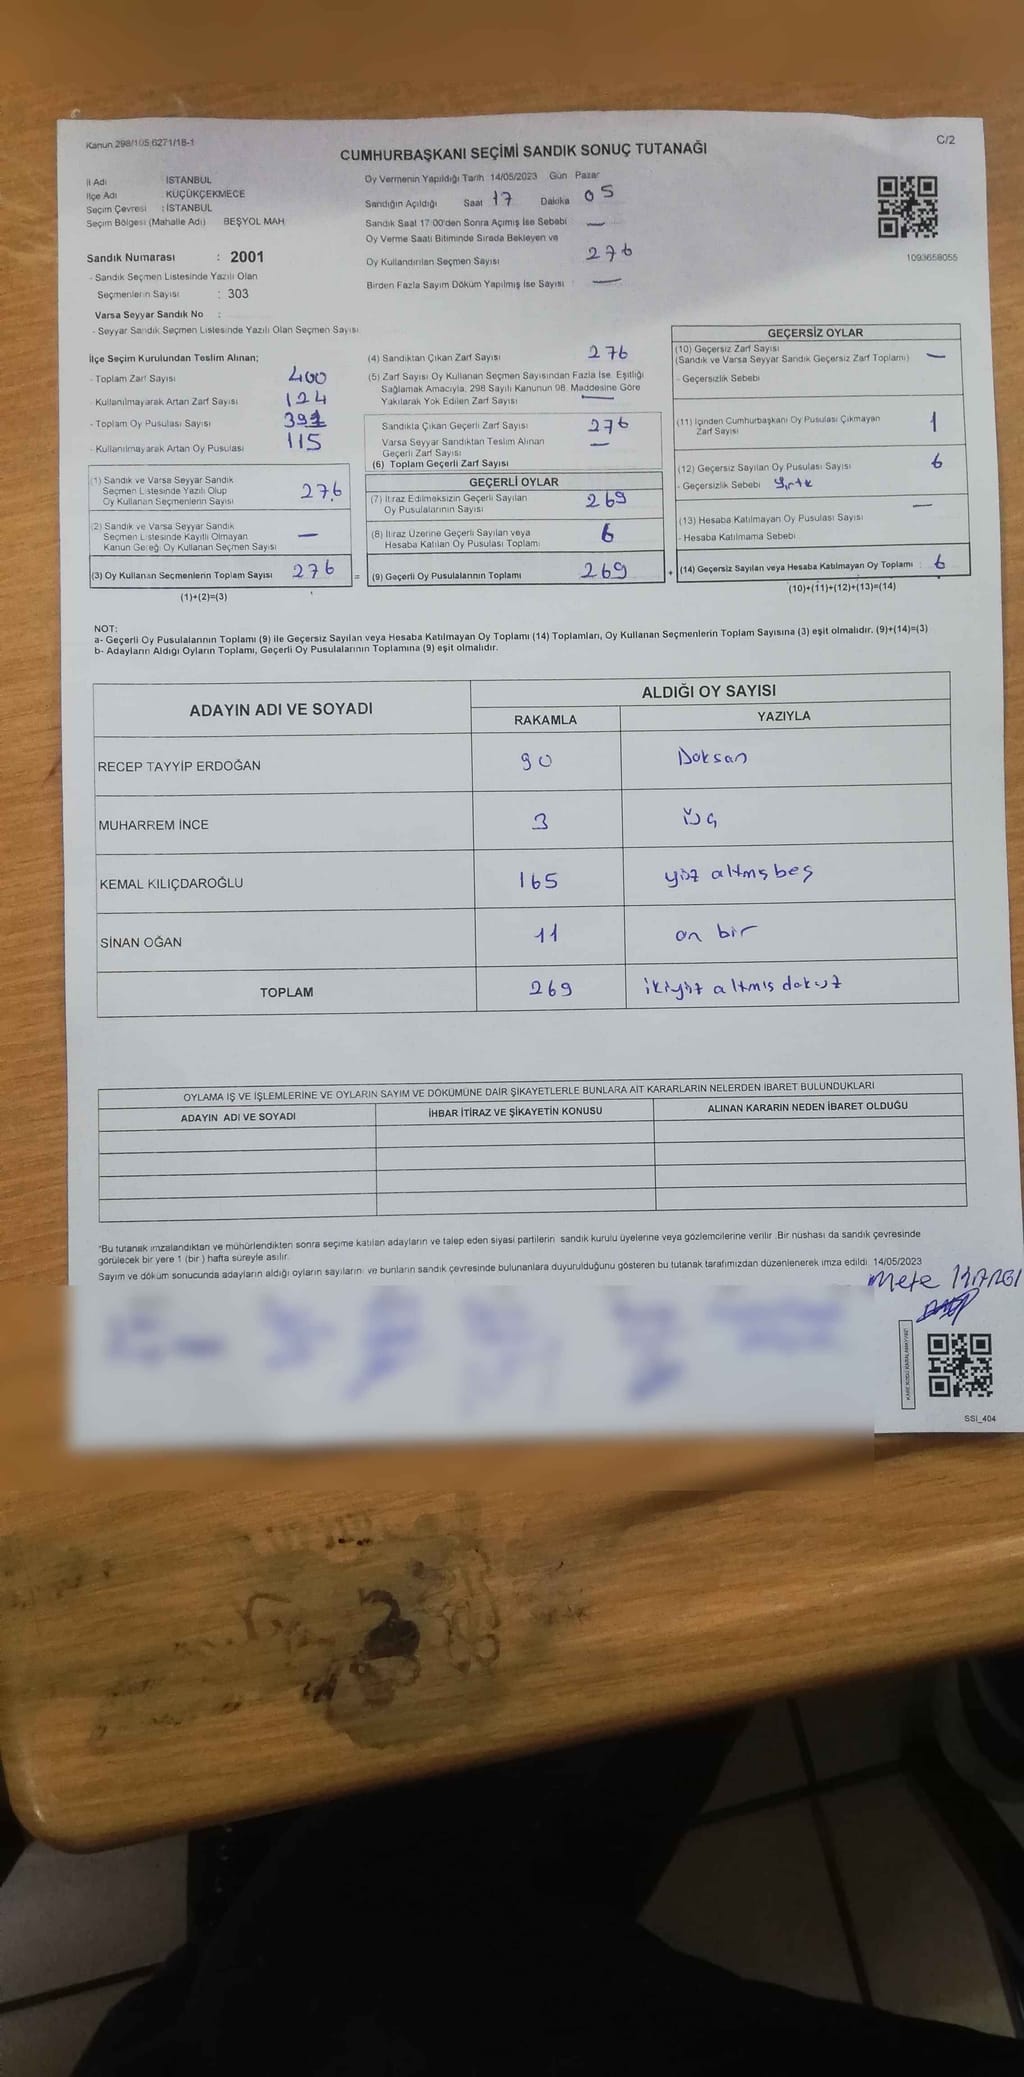 Kanun 298/105,6271/18-1
C/2
CUMHURBAŞKANI SEÇİMİ SANDIK SONUÇ TUTANAĞI
İl Adı : İSTANBUL
İlçe Adı : KÜÇÜKÇEKMECE
Seçim Çevresi : İSTANBUL
Seçim Bölgesi (Mahalle Adı) BEŞYOL MAH
Sandık Numarası : 2001
- Sandık Seçmen Listesinde Yazılı Olan
Seçmenlerin Sayısı : 303
Varsa Seyyar Sandık No :
- Seyyar Sandık Seçmen Listesinde Yazılı Olan Seçmen Sayısı
Oy Vermenin Yapıldığı Tarih 14/05/2023 Gün Pazar
Sandığın Açıldığı Saat 17 Dakika 05
Sandık Saat 17:00'den Sonra Açımış İse Sebebi —
Oy Verme Saati Bitiminde Sırada Bekleyen ve
Oy Kullandırılan Seçmen Sayısı 276
Birden Fazla Sayım Döküm Yapılmış İse Sayısı : —
1093658055
İlçe Seçim Kurulundan Teslim Alınan;
- Toplam Zarf Sayısı 400
- Kullanılmayarak Artan Zarf Sayısı 124
- Toplam Oy Pusulası Sayısı
- Kullanılmayarak Artan Oy Pusulası 115
(1) Sandık ve Varsa Seyyar Sandık
Seçmen Listesinde Yazılı Olup
Oy Kullanan Seçmenlerin Sayısı 276
(2) Sandık ve Varsa Seyyar Sandık
Seçmen Listesinde Kayıtlı Olmayan
Kanun Gereği Oy Kullanan Seçmen Sayısı —
(3) Oy Kullanan Seçmenlerin Toplam Sayısı 276
(1)+(2)=(3)
(4) Sandıktan Çıkan Zarf Sayısı 276
(5) Zarf Sayısı Oy Kullanan Seçmen Sayısından Fazla İse, Eşitliği
Sağlamak Amacıyla, 298 Sayılı Kanunun 98. Maddesine Göre
Yakılarak Yok Edilen Zarf Sayısı —
Sandıkta Çıkan Geçerli Zarf Sayısı 276
Varsa Seyyar Sandıktan Teslim Alınan
Geçerli Zarf Sayısı —
(6) Toplam Geçerli Zarf Sayısı
GEÇERLİ OYLAR
(7) İtiraz Edilmeksizin Geçerli Sayılan
Oy Pusulalarının Sayısı 269
(8) İtiraz Üzerine Geçerli Sayılan veya
Hesaba Katılan Oy Pusulası Toplamı 6
= (9) Geçerli Oy Pusulalarının Toplamı 269
GEÇERSİZ OYLAR
(10) Geçersiz Zarf Sayısı
(Sandık ve Varsa Seyyar Sandık Geçersiz Zarf Toplamı) —
- Geçersizlik Sebebi
(11) İçinden Cumhurbaşkanı Oy Pusulası Çıkmayan
Zarf Sayısı 1
(12) Geçersiz Sayılan Oy Pusulası Sayısı 6
- Geçersizlik Sebebi Yırtık
(13) Hesaba Katılmayan Oy Pusulası Sayısı —
- Hesaba Katılmama Sebebi
+ (14) Geçersiz Sayılan veya Hesaba Katılmayan Oy Toplamı : 6
(10)+(11)+(12)+(13)=(14)
NOT:
a- Geçerli Oy Pusulalarının Toplamı (9) ile Geçersiz Sayılan veya Hesaba Katılmayan Oy Toplamı (14) Toplamları, Oy Kullanan Seçmenlerin Toplam Sayısına (3) eşit olmalıdır. (9)+(14)=(3)
b- Adayların Aldığı Oyların Toplamı, Geçerli Oy Pusulalarının Toplamına (9) eşit olmalıdır.
ADAYIN ADI VE SOYADI ALDIĞI OY SAYISI
RAKAMLA YAZIYLA
RECEP TAYYİP ERDOĞAN 90 Doksan
MUHARREM İNCE 3 üç
KEMAL KILIÇDAROĞLU 165 yüz altmş beş
SİNAN OĞAN 11 on bir
TOPLAM 269 ikiyüz altmış dokuz
OYLAMA İŞ VE İŞLEMLERİNE VE OYLARIN SAYIM VE DÖKÜMÜNE DAİR ŞİKAYETLERLE BUNLARA AİT KARARLARIN NELERDEN İBARET BULUNDUKLARI
ADAYIN ADI VE SOYADI İHBAR İTİRAZ VE ŞİKAYETİN KONUSU ALINAN KARARIN NEDEN İBARET OLDUĞU
*Bu tutanak imzalandıktan ve mühürlendikten sonra seçime katılan adayların ve talep eden siyasi partilerin sandık kurulu üyelerine veya gözlemcilerine verilir. Bir nüshası da sandık çevresinde
görülecek bir yere 1 (bir) hafta süreyle asılır.
Sayım ve döküm sonucunda adayların aldığı oyların sayılarını ve bunların sandık çevresinde bulunanlara duyurulduğunu gösteren bu tutanak tarafımızdan düzenlenerek imza edildi. 14/05/2023
Mete
SSI_404